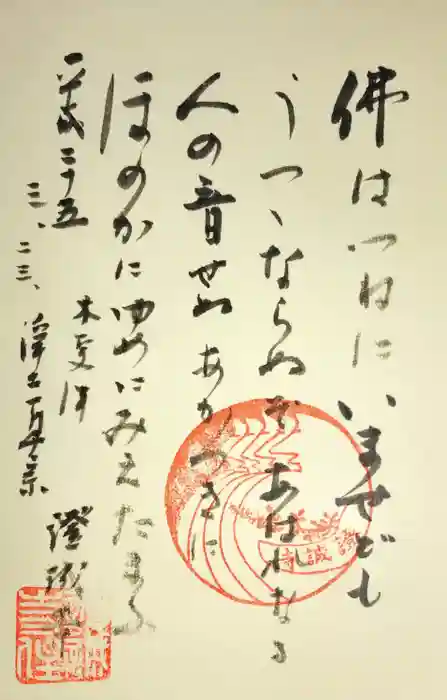 佛はつねにいませども
うつゝならぬぞあはれなる
人の音せぬあかつきに
ほのかにゆめにみえたまふ
平成二十五
三、二三、
木更津
浄土真宗
證誠寺
證誠寺